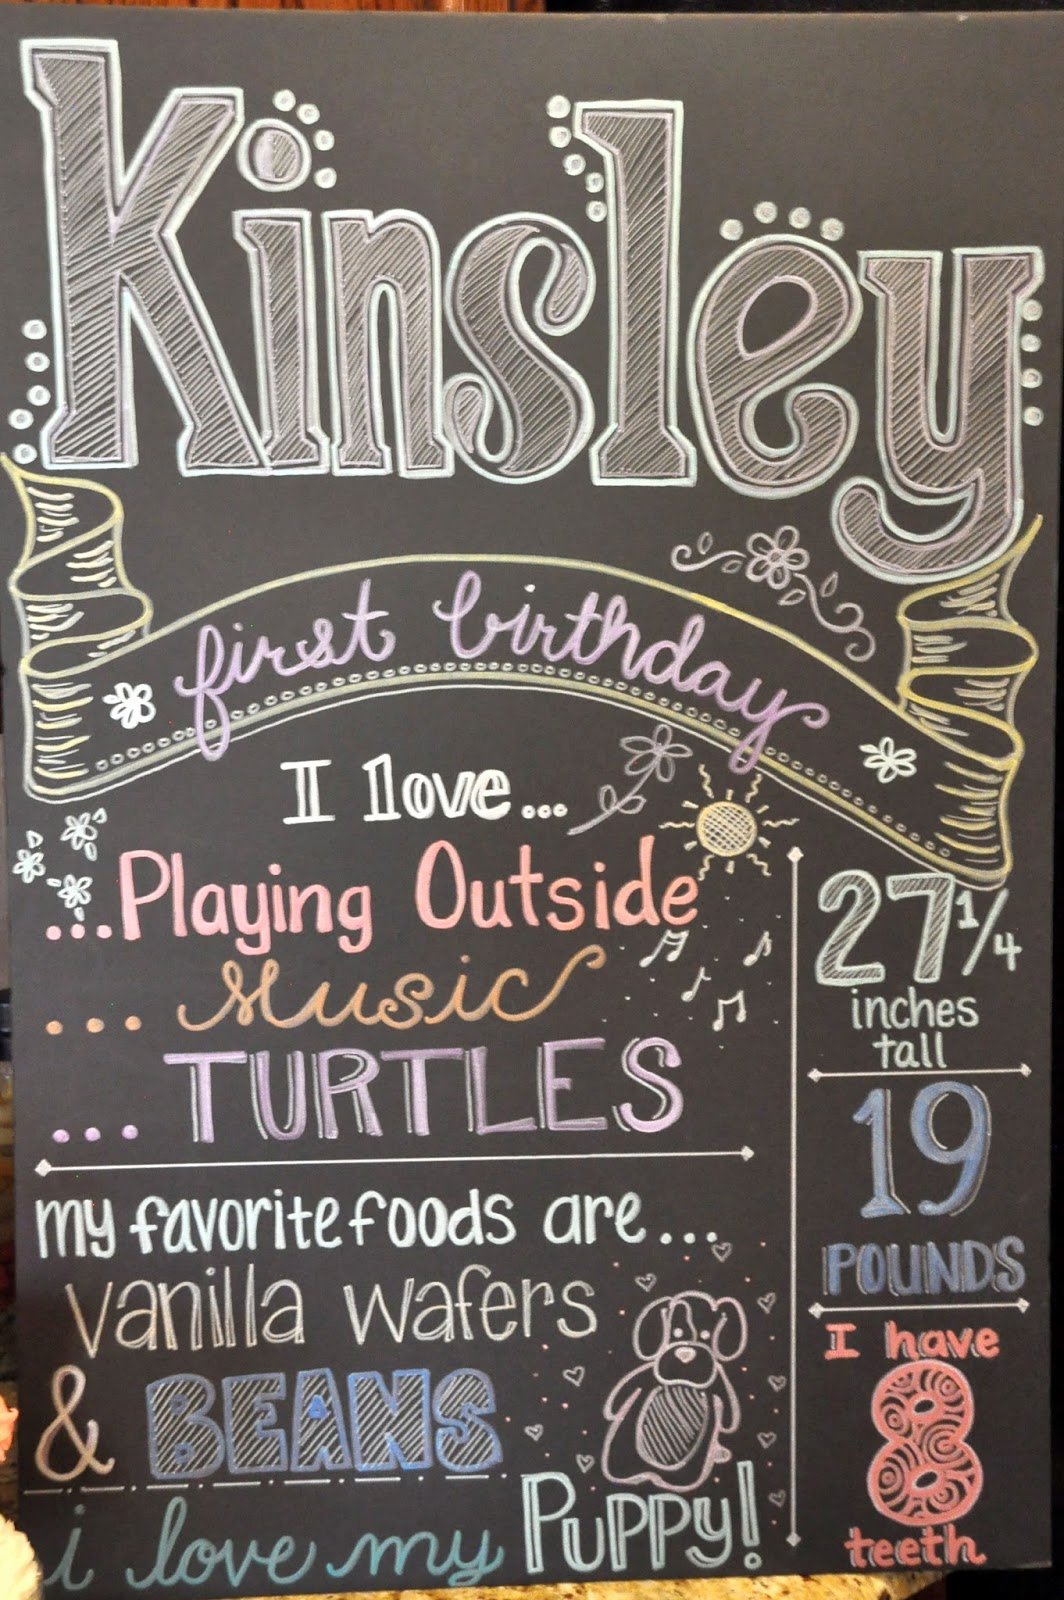 Kinsley
first birthday
I love...
...Playing Outside
...Music
...TURTLES
my favorite foods are...
vanilla wafers
& BEANS
i love my PUPPY!
27 1/4
inches
tall
19
POUNDS
I have
8
teeth